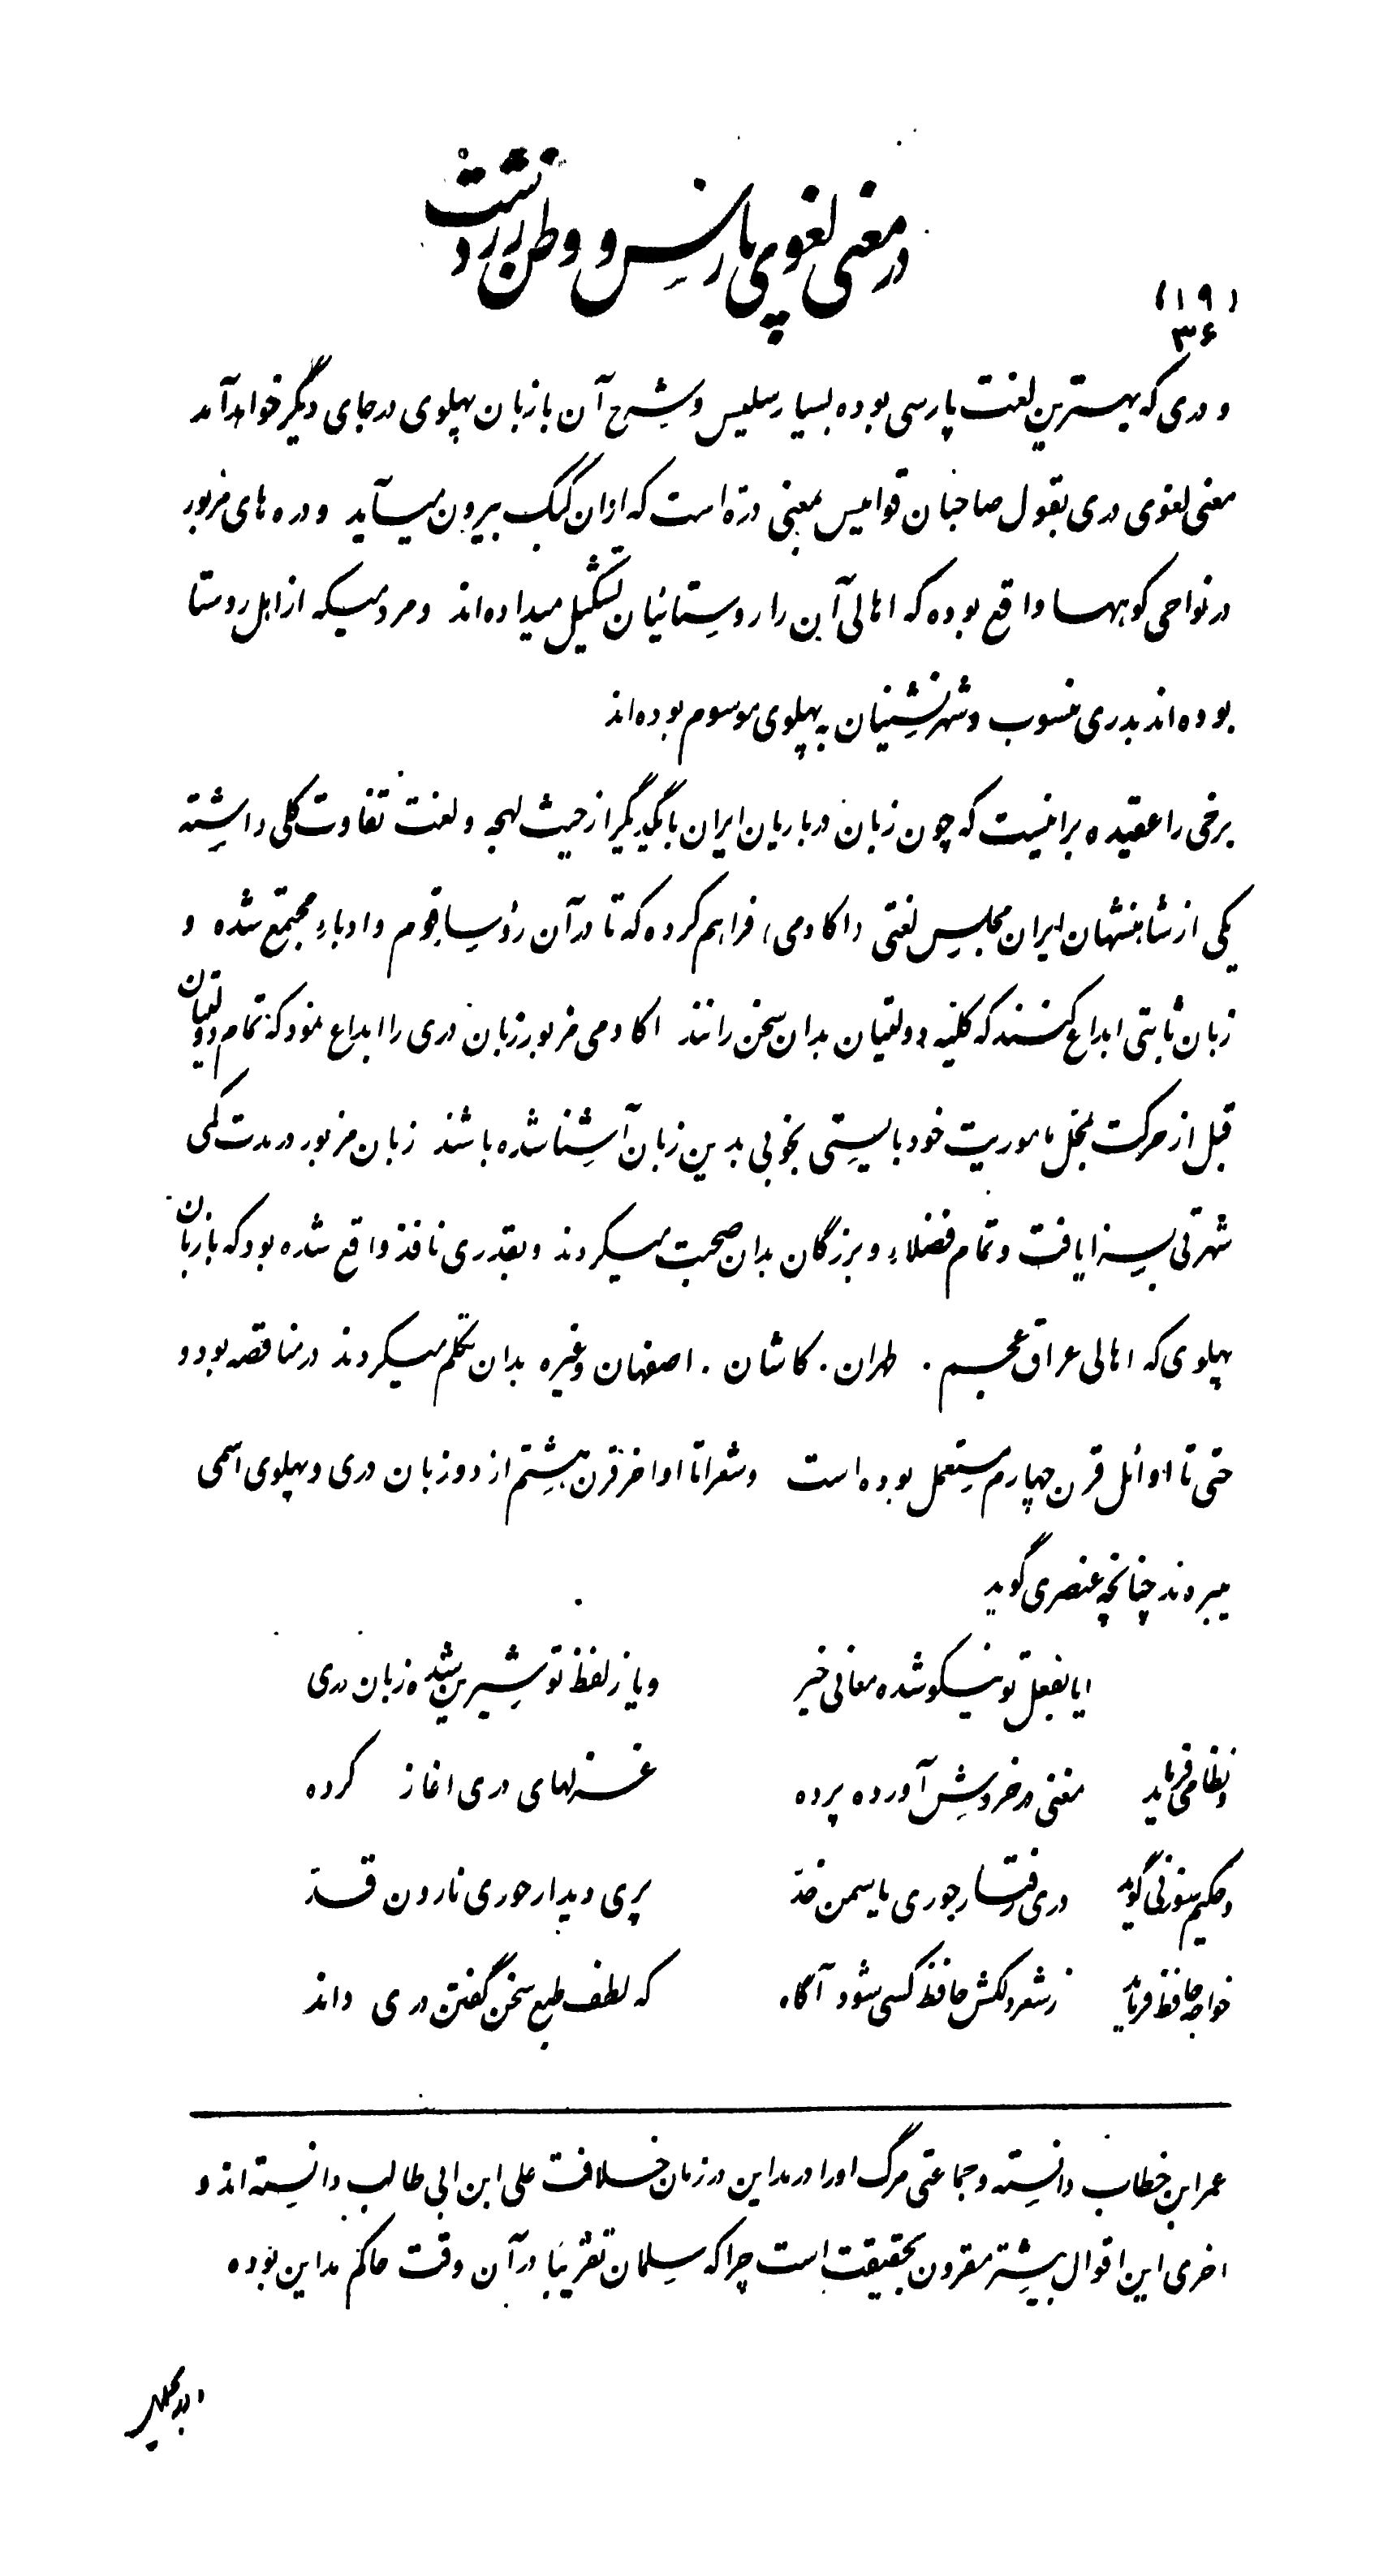 در معنی لغوی پارس و وطن زردشت
(۱۹)
۳۶
و دری که بهترین لغت پارسی بوده بسیار سلیس و شرح آن با زبان پهلوی در جای دیگر خواهد آمد
معنی لغوی دری بقول صاحبان قوامیس بمعنی درّه است که ازان کبک بیرون میآید و دره های مزبور
در نواحی کوهها واقع بوده که اهالی آن را روستائیان تشکیل میداده اند و مردمیکه از اهل روستا
بوده اند بدری منسوب و شهرنشینان به پهلوی موسوم بوده اند
برخی را عقیده بر اینست که چون زبان درباریان ایران با یکدیگر از حیث لهجه و لغت تفاوت کلی داشته
یکی از شاهنشهان ایران مجلس لغتی (اکادمی) فراهم کرده که تا در آن رؤسا قوم و ادباء مجتمع شده و
زبان ثابتی ابداع کنند که کلیه دولتیان بدان سخن رانند اکادمی مزبور زبان دری را ابداع نمود که تمام دولتیان
قبل از حرکت بمحل ماموریت خود بایستی بخوبی بدین زبان آشنا شده باشند زبان مزبور در مدت کمی
شهرتی بسزا یافت و تمام فضلاء و بزرگان بدان صحبت میکردند و بقدری نافذ واقع شده بود که با زبان
پهلوی که اهالی عراق عجم . طهران . کاشان . اصفهان وغیره بدان تکلم میکردند در مناقصه بود و
حتی تا اوائل قرن چهارم مستعمل بوده است و شعرا تا اواخر قرن هشتم از دو زبان دری و پهلوی اسمی
میبردند چنانچه عنصری گوید
ایا بفعل تو نیکو شده معانی خیر ویا ز لفظ تو شیرین شده زبان دری
و نظامی فرماید مغنی در خروش آورده پرده غزلهای دری اغاز کرده
و حکیم سوزنی گوید دری رفتار جوری یاسمن خدّ پری دیدار حوری نارون قدّ
خواجه حافظ فرماید ز شعر دلکش حافظ کسی شود آگاه که لطف طبع سخن گفتن دری داند
عمر ابن خطاب دانسته و جماعتی مرگ اورا در مداین در زمان خلافت علی ابن ابی طالب دانسته اند و
اخری این اقوال بیشتر مقرون بحقیقت است چراکه سلمان تقریبًا در آن وقت حاکم مداین بوده